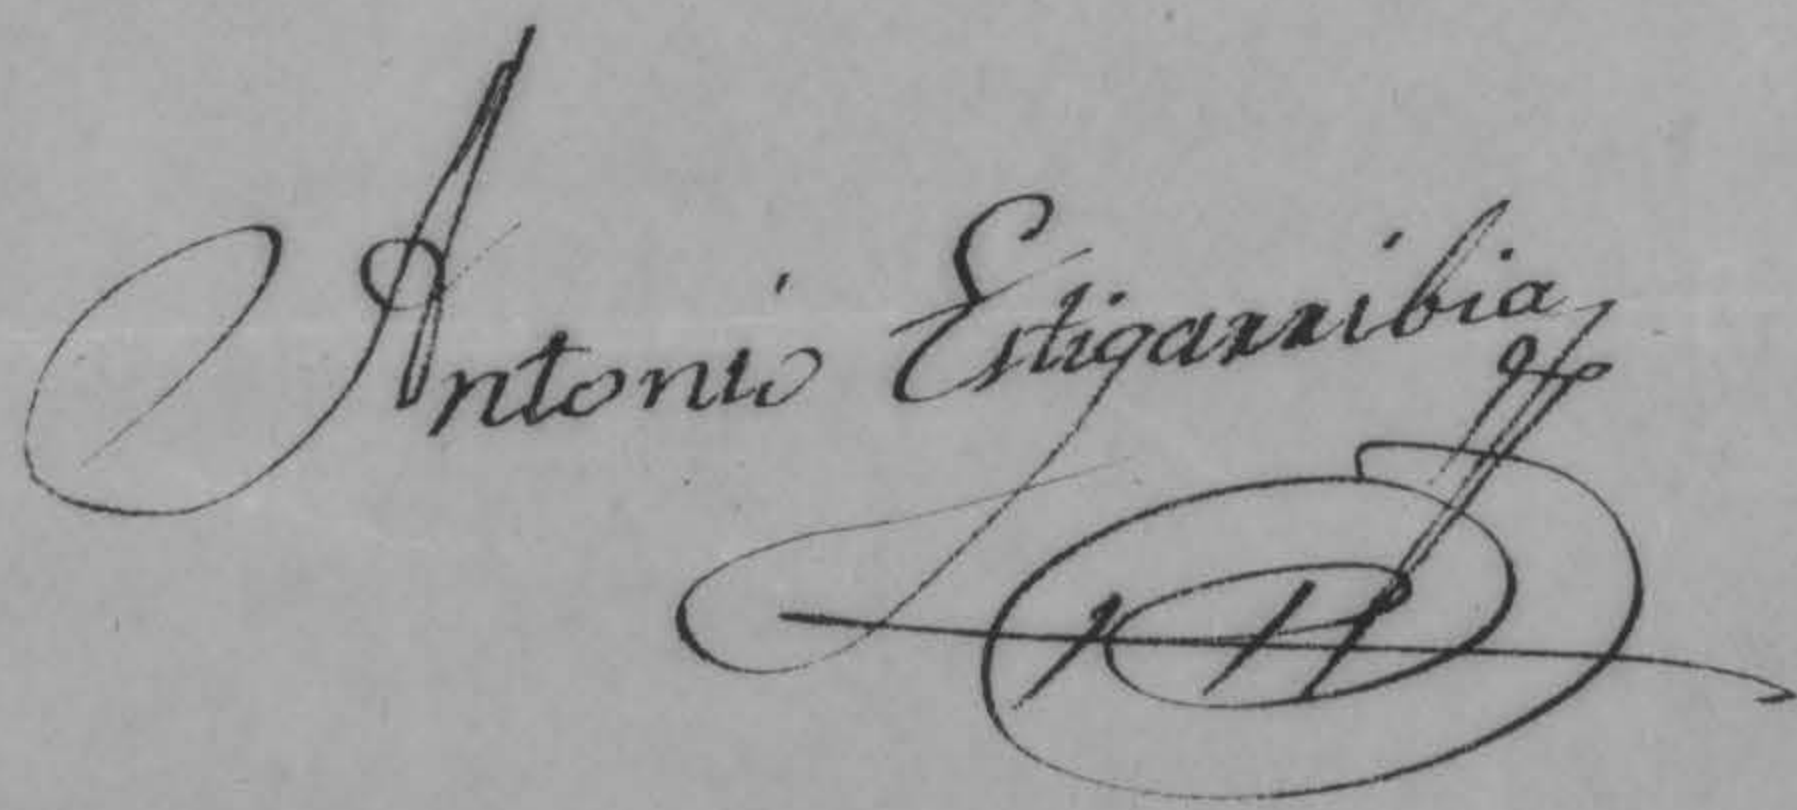 Antonio Estigarribia